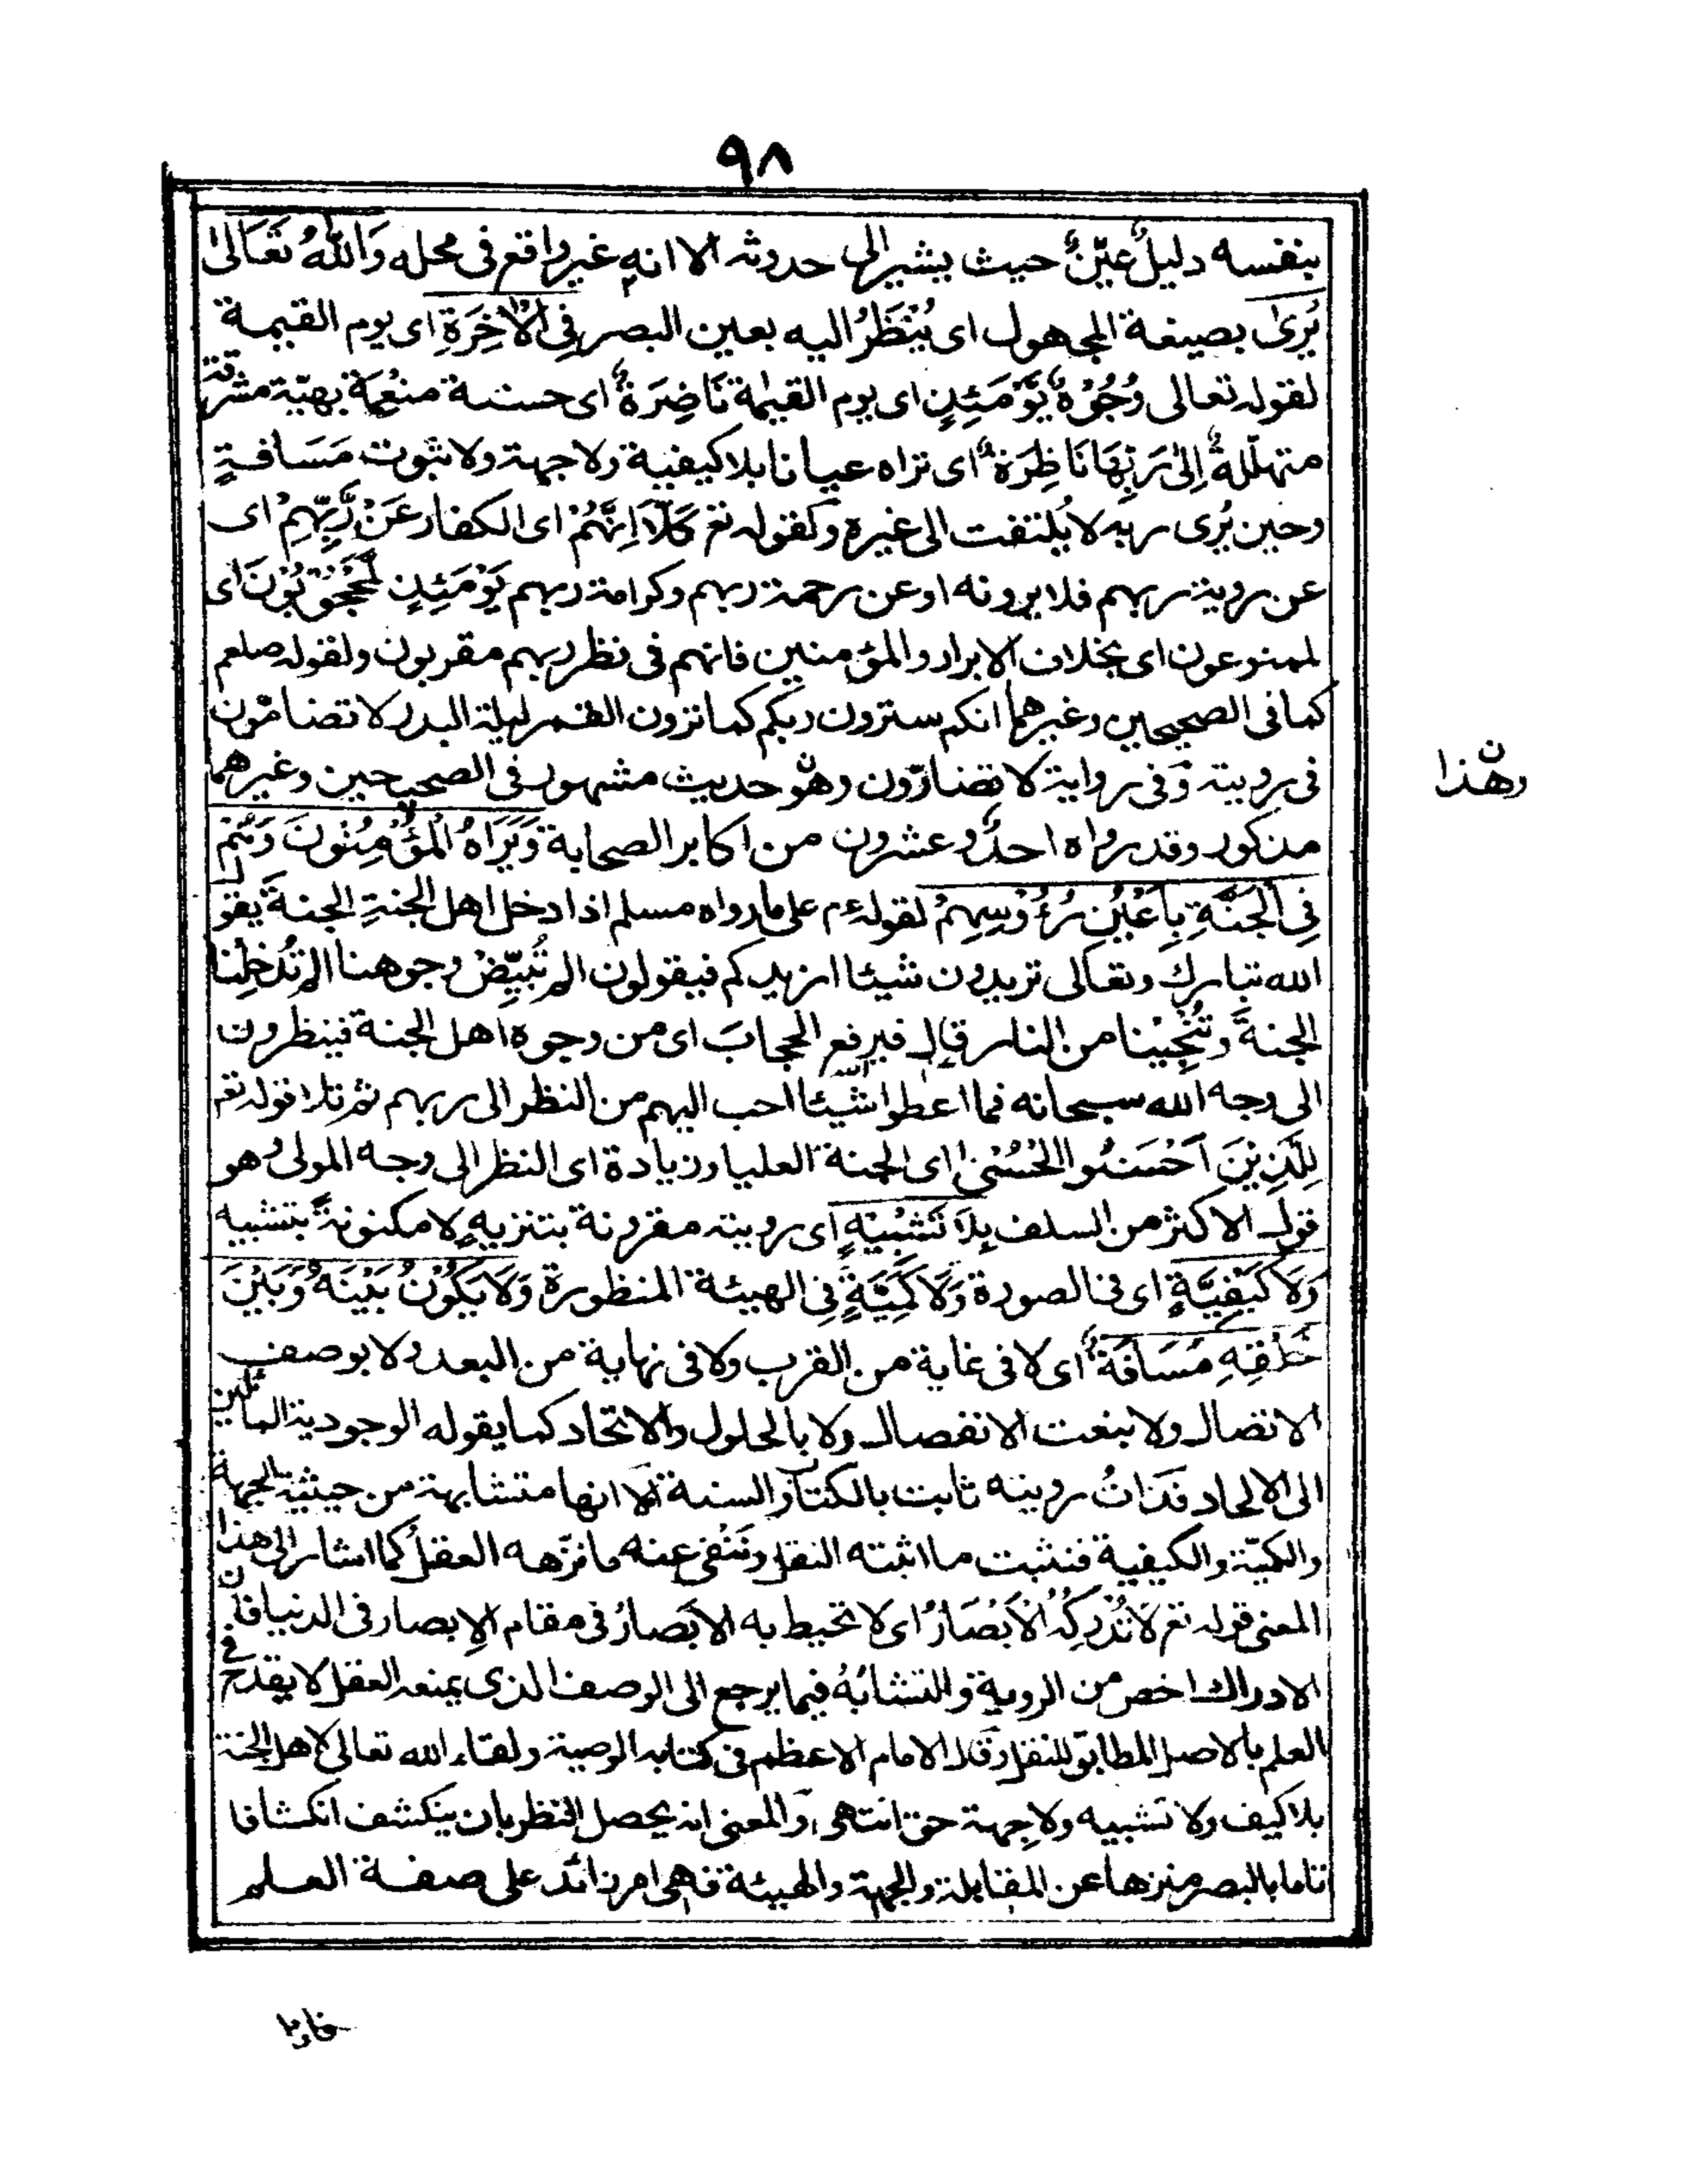 ٩٨
بنفسه دليلٌ عيّنٌ حيث يشير الى حدوثه الا انه غير واقع فى محله وَاللهُ تَعَالىٰ
يُرىٰ بصيغة المجهول اى يُنْظَرُ اليه بعين البصر فِى الْاٰخِرَةِ اى يوم القيمة
لقوله تعالى وُجُوْهٌ يَّوْمَئِذٍ اى يوم القيٰمة نَاضِرَةٌ اى حسنة منعّمة بهيّة مشرقة
متهلّلةٌ اِلىٰ رَبِّهَا نَاظِرَةٌ اى تراه عيانا بلا كيفية ولا جهة ولا ثبوت مَسَافةٍ
وحين يُرى ربه لا يُلتفت الى غيره وكقوله تع كَلَّا اِنَّهُمْ اى الكفار عَنْ رَّبِّهِمْ اى
عن روية ربهم فلا يرونه او عن رحمة ربهم وكرامة ربهم يَوْمَئِذٍ لَّمَحْجُوْبُوْنَ اى
لممنوعون اى بخلاف الابرار والمؤمنين فانهم فى نظر ربهم مقربون ولقوله صلعم
كما فى الصحيحين وغيرهما انكم سترون ربكم كما ترون القمر ليلة البدر لا تضامّون
فى رويته وفى رواية لا تضارّون وهو حديث مشهور فى الصحيحين وغيرهما
ن
وهذا
مذكور وقد رواه احدٌ وعشرون من اكابر الصحابة وَيَرَاهُ الْمُؤْمِنُوْنَ وَهُمْ
فِى الْجَنَّةِ بِاَعْيُنِ رُءُوْسِهِمْ لقوله ءم على ما رواه مسلم اذا دخل اهل الجنةِ الجنةَ يقول
الله تبارك وتعالى تريدون شيئا ازيدكم فيقولون الم تُبيِّضْ وجوهنا الم تُدْخِلْنا
الجنةَ وتُنْجِيْنا من النار قال فيرفع الحجابَ اى من وجوه اهل الجنة فينظرون
الى وجه الله سبحانه فما اعطوا شيئا احب اليهم من النظر الى ربهم ثم تلا قوله تع
لِلَّذِيْنَ اَحْسَنُوا الْحُسْنىٰ اى الجنة العليا وزيادة اى النظر الى وجه المولى وهو
قول الاكثر من السلف بِلَا تَشْبِيْهٍ اى روية مقرونة بتنزيهٍ لا مكنونةً بتشبيه
وَلَا كَيْفِيَّةٍ اى فى الصورة وَلَا كَمِّيَّةٍ فِى الهيئة المنظورة وَلَا يَكُوْنُ بَيْنَهٗ وَبَيْنَ
خَلْقِهٖ مَسَافَةٌ اى لا فى غاية من القرب ولا فى نهاية من البعد ولا بوصف
الاتصال ولا بنعت الانفصال ولا بالحلول والاتحاد كما يقوله الوجودية المائلين
الى الالحاد فذاتُ رويته ثابت بالكتاب والسنة الا انها متشابهة من حيثية الجهة
والكميّة والكيفية فنثبت ما اثبته النقل ونَنْفى عنه ما نزّهه العقل كما اشار الى هذا
المعنى قوله تع لَا تُدْرِكُهُ الْاَبْصَارُ اى لا تحيط به الابصارُ فى مقام الابصار فى الدنيا فان
الادراك اخص من الروية والتشابُهُ فيما يرجع الى الوصف الذى يمنعه العقل لا يقدح فى
العلم بالاصل المطابق للنقل وقال الامام الاعظم فى كتابه الوصية ولقاء الله تعالى لاهل الجنة
بلا كيف ولا تشبيه ولا جهة حق انتهى والمعنى انه يحصل النظر بان ينكشف انكشافا
تاما بالبصر منزها عن المقابلة والجهة والهيئة فهى امر زائد على صفة العلم